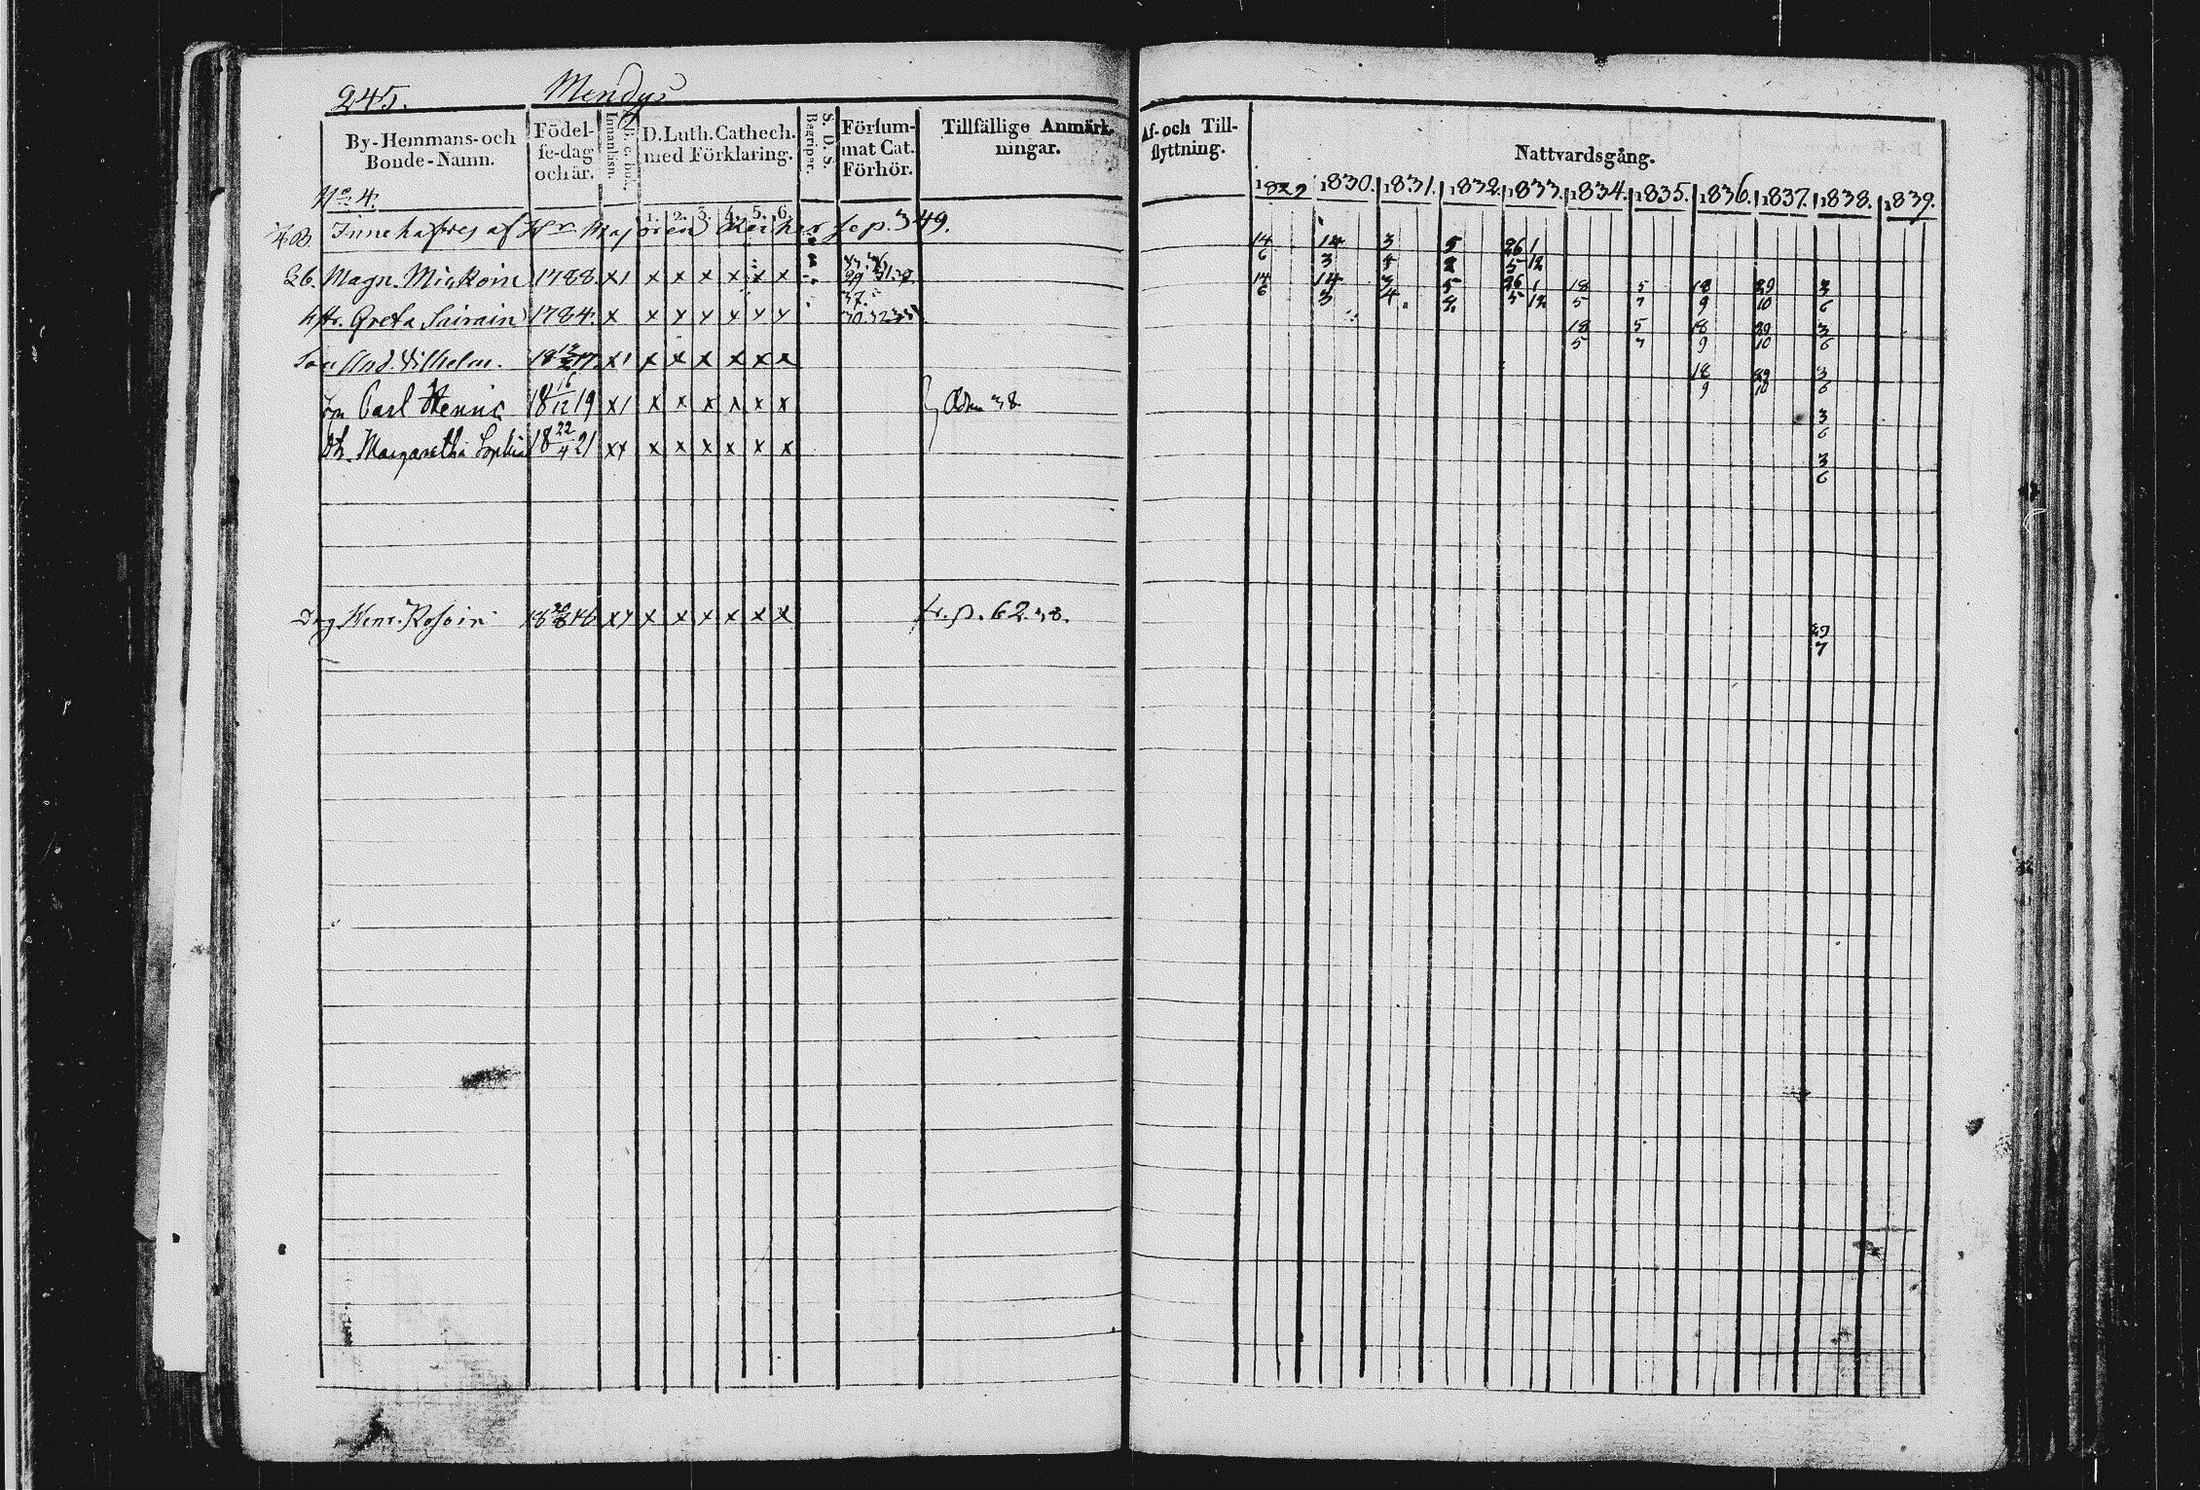 245. Mendys
By-Hemmans-och Bonde-Namn. Födel-se-dag och år. Innanläsn. D. Luth. Cathech. med Förklaring. Begriper. S. D. S. Försum-mat Cat. Förhör. Tillfällige Anmärk-ningar. Af- och Till-flyttning. Nattvardsgång.
1829 1830. 1831. 1832. 1833. 1834. 1835. 1836. 1837. 1838. 1839.
No 4. 1. 2. 3. 4. 5. 6.
Innehafves af Hr Majoren se p. 349.
14 14 3 5 26 1
6 3 4 2 5 12
Magn. Mickoin 1788. x1 x x x x x x
14 14 3 5 26 1 18 5 18 29 3
6 3 4 2 5 12 5 7 9 10 6
Greta Sairain 1784. x x x x x x x 30.32.35
18 5 18 29 3
5 7 9 10 6
And. Vilhelm. x1 x x x x x x
18 29 3
9 10 6
Carl Henric 18 16/12 19 x1 x x x x x x
3
6
Margaretha Sophia 18 22/4 21 xx x x x x x x
3
6
Henr. x x x x x x fr. p. 62. 38.
29
7